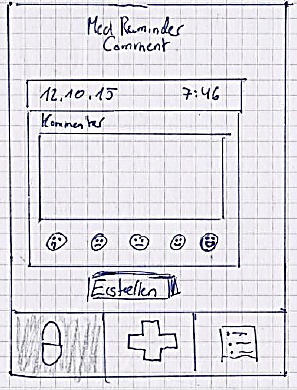 Med Reminder
Comment
12.10.15 7:46
Kommentar
Erstellen